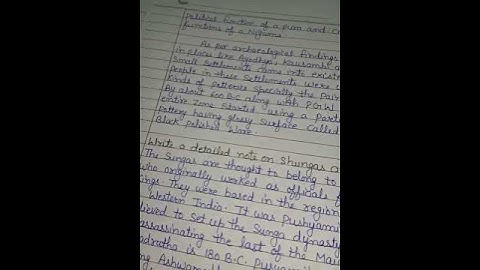 political function of a pura and
functions of a Nigrama
As per archaeological findings
in places like Ayodhya, Kausambi a
Small Settlements came into existe
people in these Settlements were u
Kinds of potteries specially the Pain
By about 600 B.C along with P.G.W
entire zone started using a parti
pottery having glossy surface called
Black polished Ware.
Write a detailed note on Shungas a
The Sungas are thought to belong to
who originally worked as officials
ings. They were based in the region
Western India. It was Pushyami
lieved to set up the Sunga dynasty
assassinating the last of the Mau
adratha is 180 B.C.
ng Ashwam